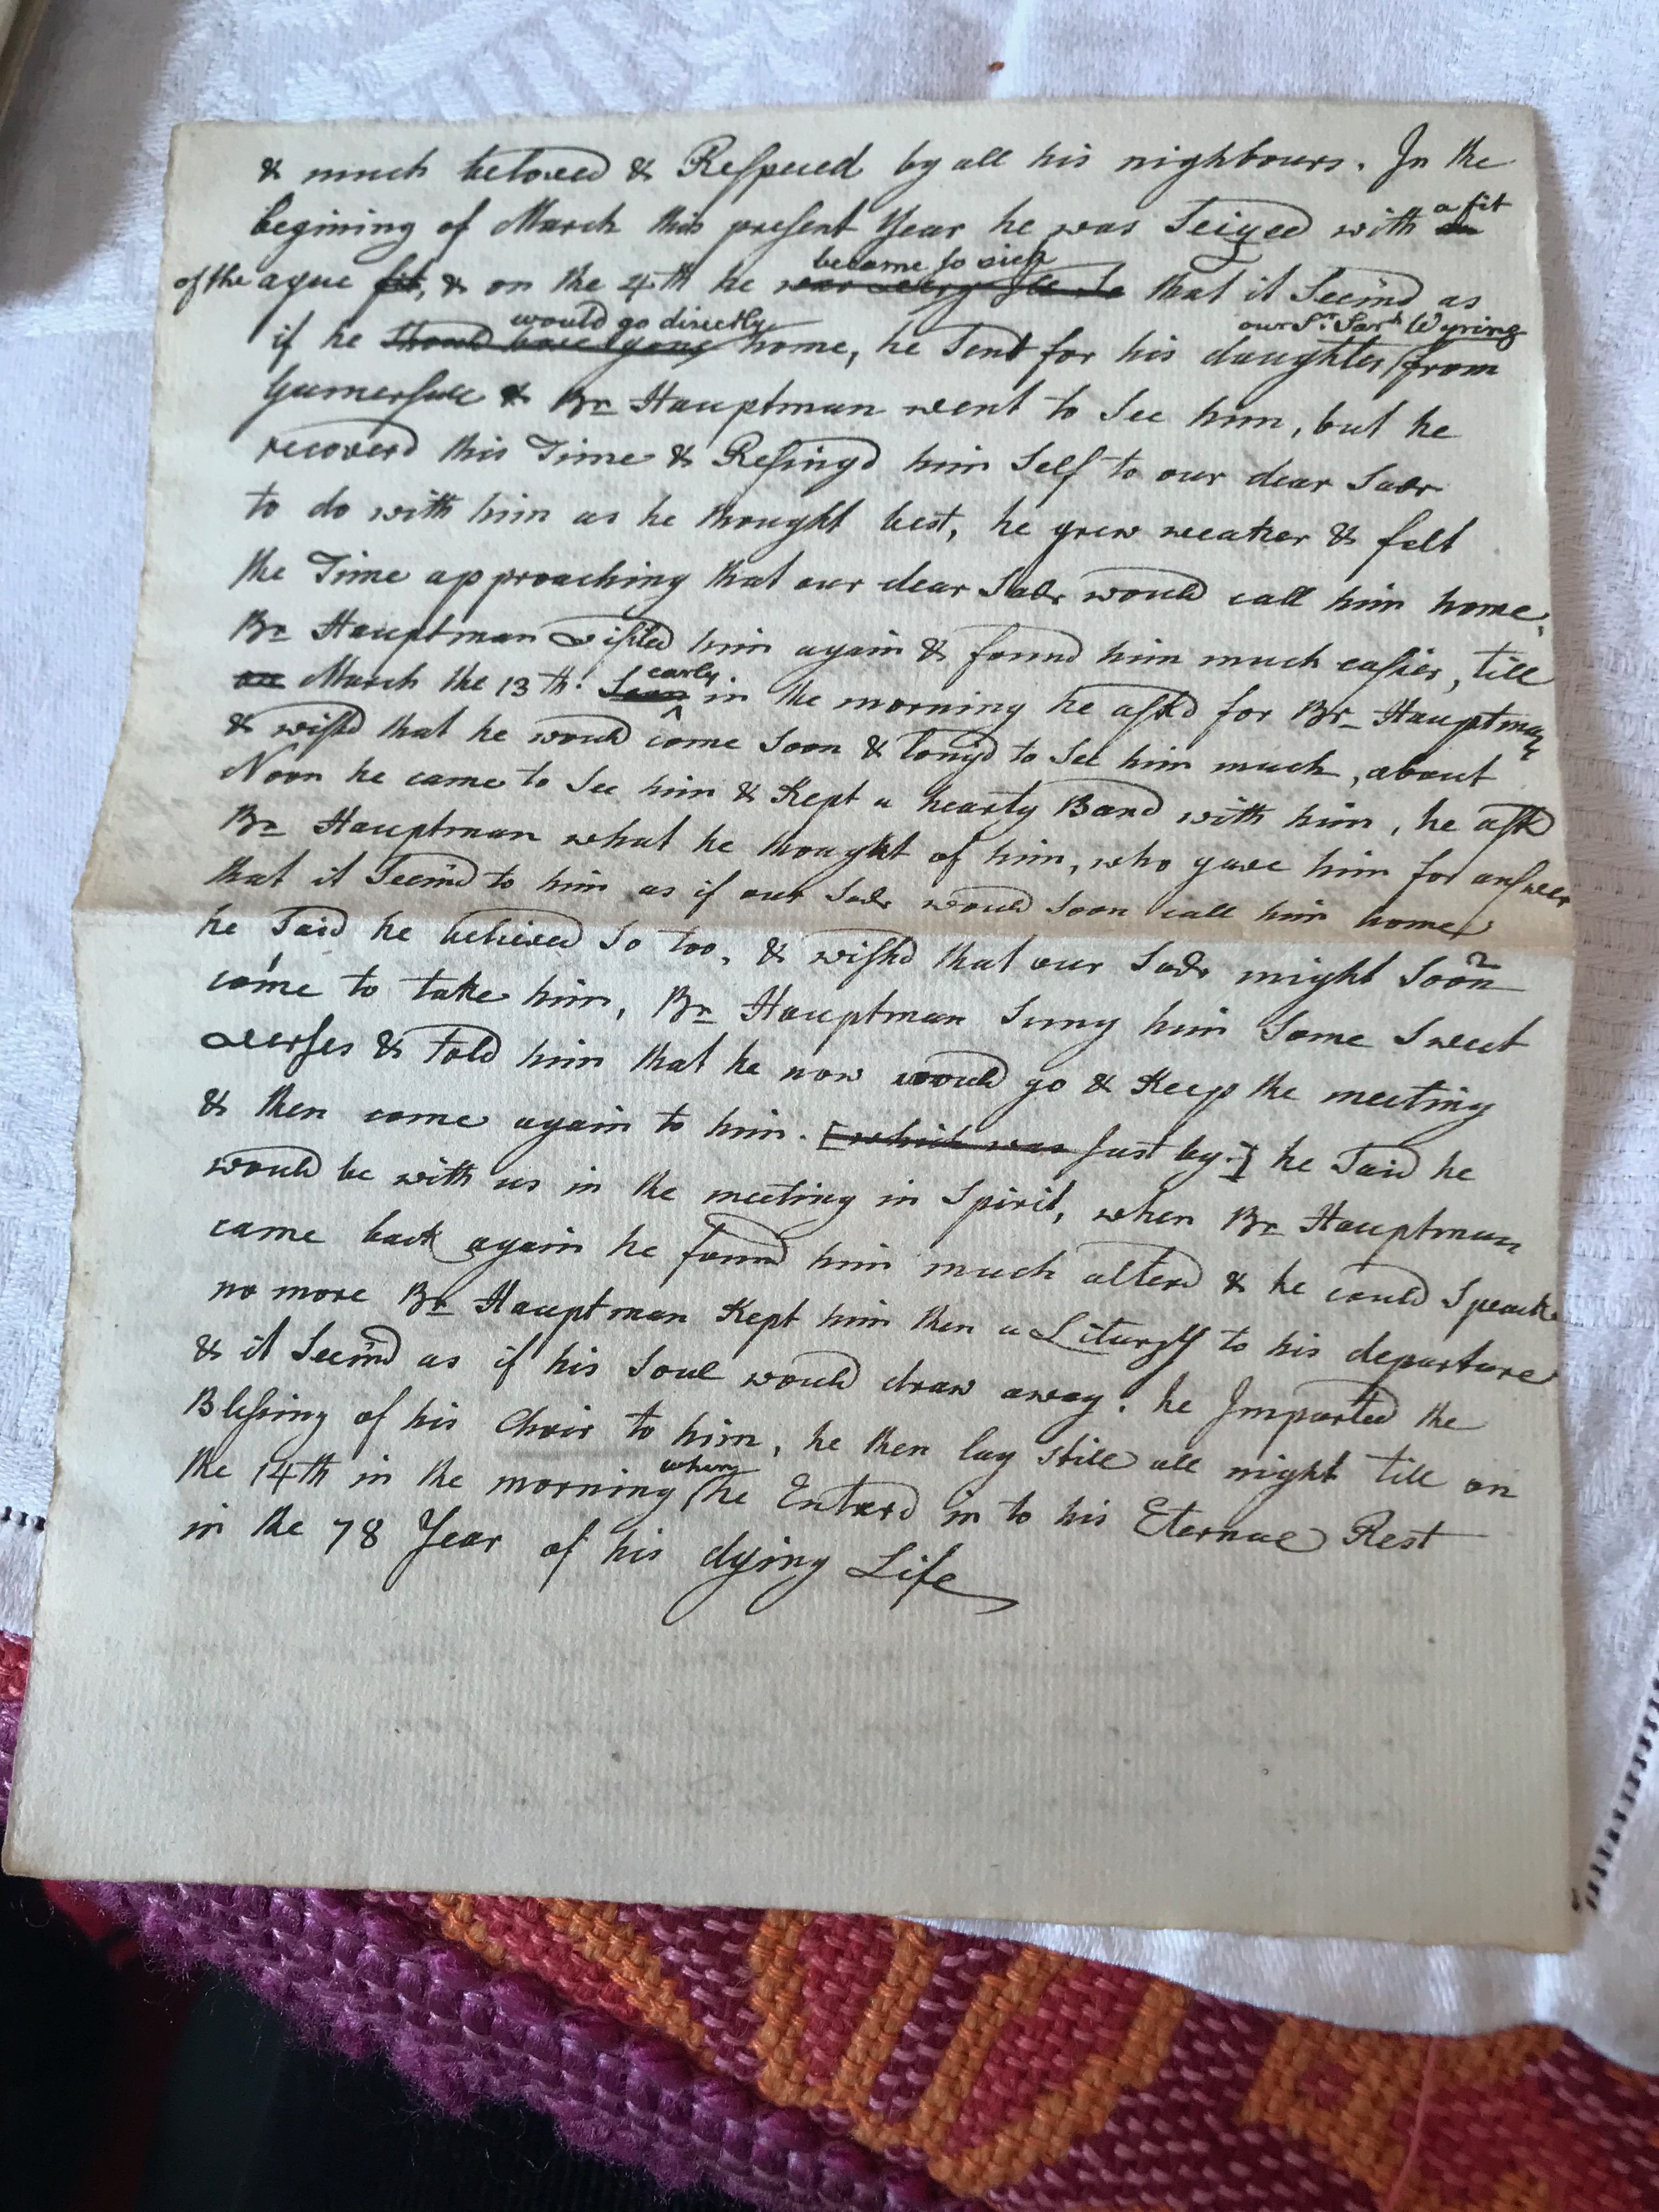 & much beloved & Respected by all his nighbours. In the
a fit
begining of March this present Year he was Seized with an
became so sick
of the ague fit, & on the 4th he was very ill so that it Seem'd as
would go directly our Sr. Sarh Wyring
if he should have gone home, he Sent for his daughter from
Gumersall & Br Hauptman went to See him, but he
recoverd this Time & Resingd him Self to our dear Savr
to do with him as he thought best, he grew weaker & felt
the Time approaching that our dear Savr would call him home,
Br Hauptman visited him again & found him much easier, till
early
on March the 13th. Soon in the morning he askd for Br Hauptman
& wishd that he would come Soon & longd to See him much, about
Noon he came to See him & Kept a hearty Band with him, he askd
Br Hauptman what he thought of him, who gave him for answer
that it Seem'd to him as if our Savr would Soon call him home
he Said he believed So too, & wishd that our Savr might Soon
come to take him, Br Hauptman Sung him Some Sweet
verses & Told him that he now would go & Keep the meeting
& then come again to him. [which was Just by.] he Said he
would be with us in the meeting in Spirit, when Br Hauptman
came back again he found him much alterd & he could Speack
no more Br Hauptman Kept him then a Liturgy to his departure
& it Seem'd as if his Soul would draw away. he Imparted the
Blessing of his Choir to him, he then lay still all night till on
when
the 14th in the morning he Enterd in to his Eternal Rest
in the 78 Year of his dying Life